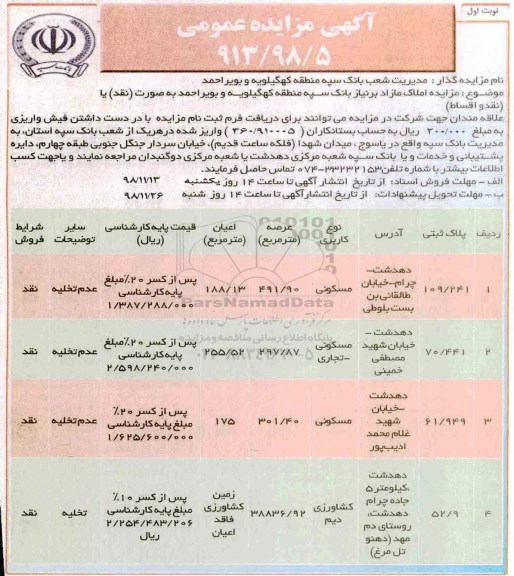 نوبت اول
آگهی مزایده عمومی
۹۱۳/۹۸/۵
نام مزایده گذار : مدیریت شعب بانک سپه منطقه کهگیلویه و بویراحمد
موضوع : مزایده املاک مازاد برنیاز بانک سپه منطقه کهگیلویه و بویراحمد به صورت (نقد) یا
(نقدو اقساط)
علاقه مندان جهت شرکت در مزایده می توانند برای دریافت فرم ثبت نام مزایده با در دست داشتن فیش واریزی
به مبلغ ۲۰۰/۰۰۰ ریال به حساب بستانکاران ( ۳۶۰/۹۱۰۰۰۵ ) واریز شده درهریک از شعب بانک سپه استان، به
مدیریت بانک سپه واقع در یاسوج ، میدان شهدا (فلکه ساعت قدیم)، خیابان سردار جنگل جنوبی طبقه چهارم، دایره
پشتیبانی و خدمات و یا بانک سپه شعبه مرکزی دهدشت یا شعبه مرکزی دوگنبدان مراجعه نمایند و یاجهت کسب
اطلاعات بیشتر با شماره تلفن ۳۳۲۳۲۱۵۳-۰۷۴ تماس حاصل فرمایند.
الف - مهلت فروش اسناد: از تاریخ انتشار آگهی تا ساعت ۱۴ روز یکشنبه ۹۸/۱۱/۱۳
ب - مهلت تحویل پیشنهادات: از تاریخ انتشار آگهی تا ساعت ۱۴ روز شنبه ۹۸/۱۱/۲۶
ردیف پلاک ثبتی آدرس نوع کاربری عرصه (مترمربع) اعیان (مترمربع) قیمت پایه کارشناسی (ریال) سایر توضیحات شرایط فروش
۱ ۱۰۹/۲۴۱ دهدشت- چرام-خیابان طالقانی بن بست بلوطی مسکونی ۴۹۱/۹۰ ۱۸۸/۱۳ پس از کسر ۲۰٪مبلغ پایه کارشناسی ۱/۳۸۷/۲۸۸/۰۰۰ عدم تخلیه نقد
۲ ۷۰/۴۴۱ دهدشت - خیابان شهید مصطفی خمینی مسکونی -تجاری ۲۹۷/۸۷ ۲۵۵/۵۲ پس از کسر ۲۰٪مبلغ پایه کارشناسی ۲/۵۹۸/۲۴۰/۰۰۰ عدم تخلیه نقد
۳ ۶۱/۹۴۹ دهدشت -خیابان شهید غلام محمد ادیب‌پور مسکونی ۳۰۱/۴۰ ۱۷۵ پس از کسر ۲۰٪ مبلغ پایه کارشناسی ۱/۶۲۵/۶۰۰/۰۰۰ عدم تخلیه نقد
۴ ۵۲/۹ دهدشت ،کیلومتر ۵ جاده چرام دهدشت، روستای دم مهد (دهنو تل مرغ) کشاورزی دیم ۳۸۸۳۶/۹۲ زمین کشاورزی فاقد اعیان پس از کسر ۱۰٪ مبلغ پایه کارشناسی ۲/۲۵۴/۴۸۳/۲۰۶ ریال تخلیه نقد
ParsNamadData
پایگاه اطلاع رسانی مناقصه و مزایده